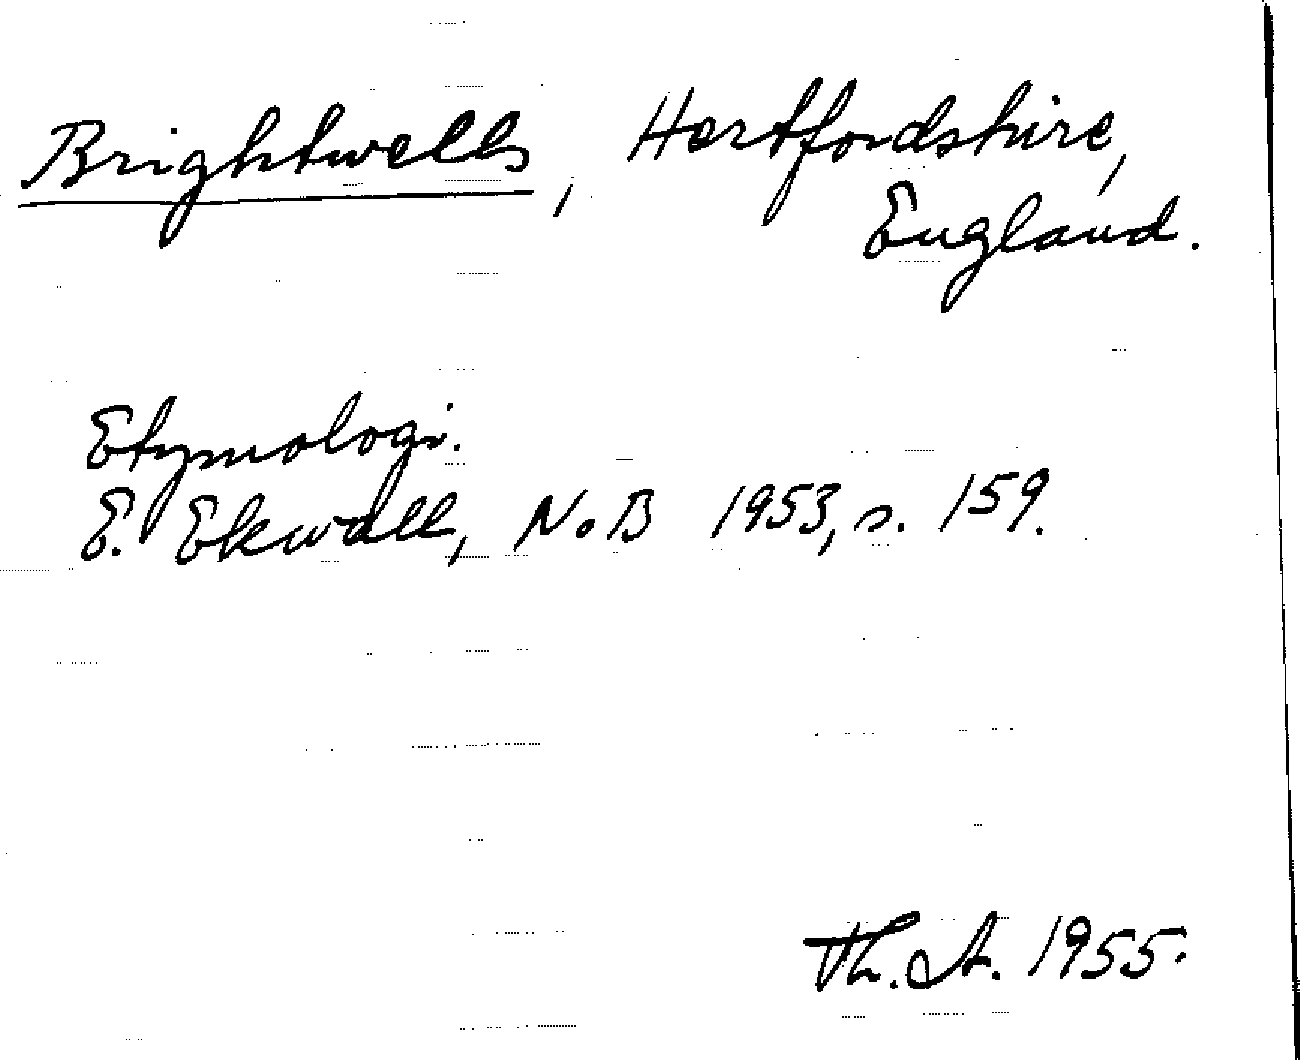 Brightwells, Hertfordshire,
England.
Etymologi.
E. Ekwall, NoB 1953, s. 159.
Th. A. 1955.